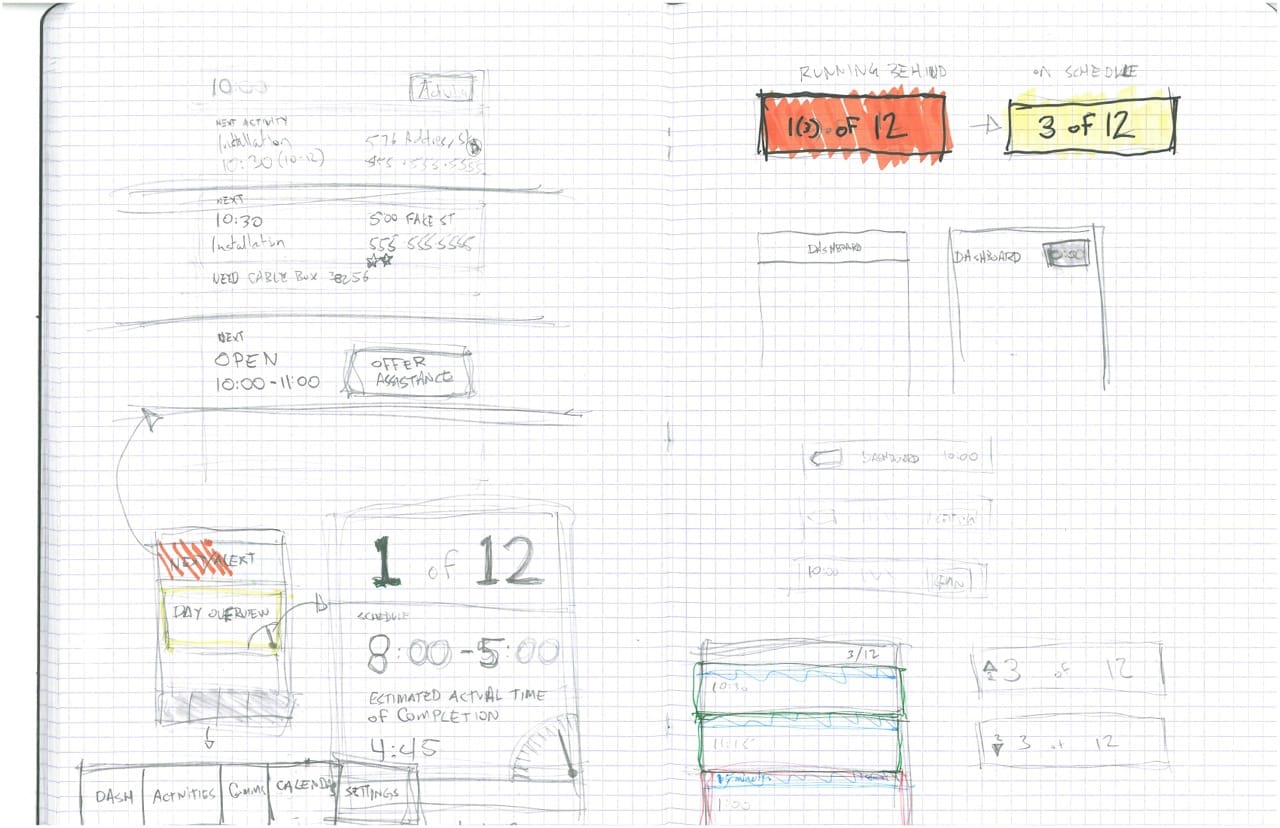 10:00
NEXT ACTIVITY
Installation
576 Address St
10:30 (10-12)
555-555-5555
NEXT
10:30
500 FAKE ST
Installation
555 555-5555
NEED CABLE BOX 3256
NEXT
OPEN
10:00-11:00
OFFER
ASSISTANCE
NEXT ALERT
DAY OVERVIEW
1 of 12
SCHEDULE
8:00-5:00
ESTIMATED ACTUAL TIME
OF COMPLETION
4:45
DASH
ACTIVITIES
Comms
CALENDAR
SETTINGS
RUNNING BEHIND
1(3) of 12
ON SCHEDULE
3 of 12
DASHBOARD
DASHBOARD
10:00
DASHBOARD 10:00
10:00
3/12
10:30
11:15
1:00
2 3 of 12
2 3 of 12